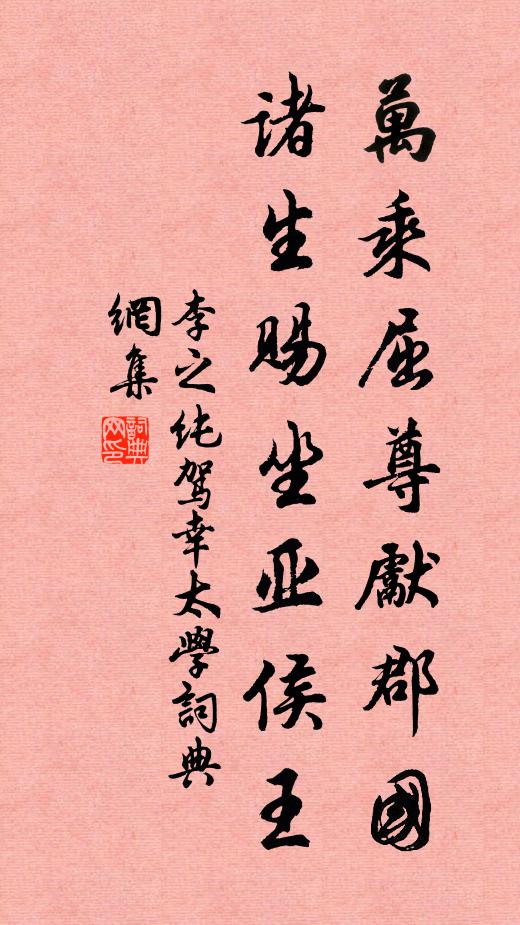 萬乘屈尊獻郡國
諸生賜坐亚侯王
李之纯駕幸太學詞典
網集
詞典
网印